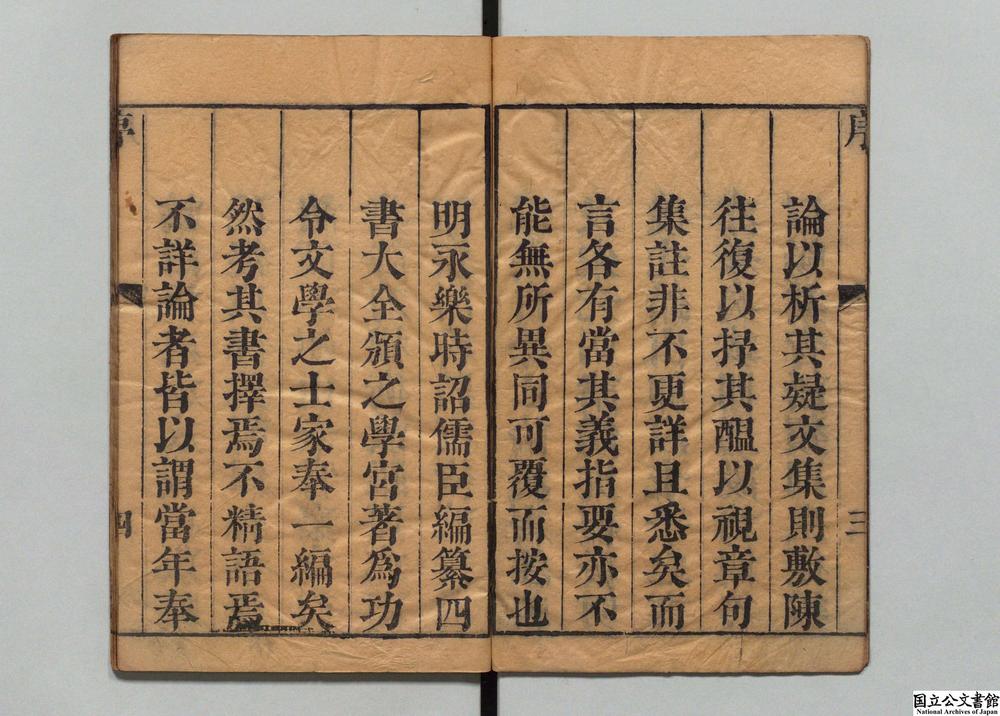 序
三
論以析其疑文集則敷陳
往復以抒其醞以視章句
集註非不更詳且悉矣而
言各有當其義指要亦不
能無所異同可覆而按也
明永樂時詔儒臣編纂四
書大全頒之學宮著為功
令文學之士家奉一編矣
然考其書擇焉不精語焉
不詳論者皆以謂當年奉
四
国立公文書館
National Archives of Japan